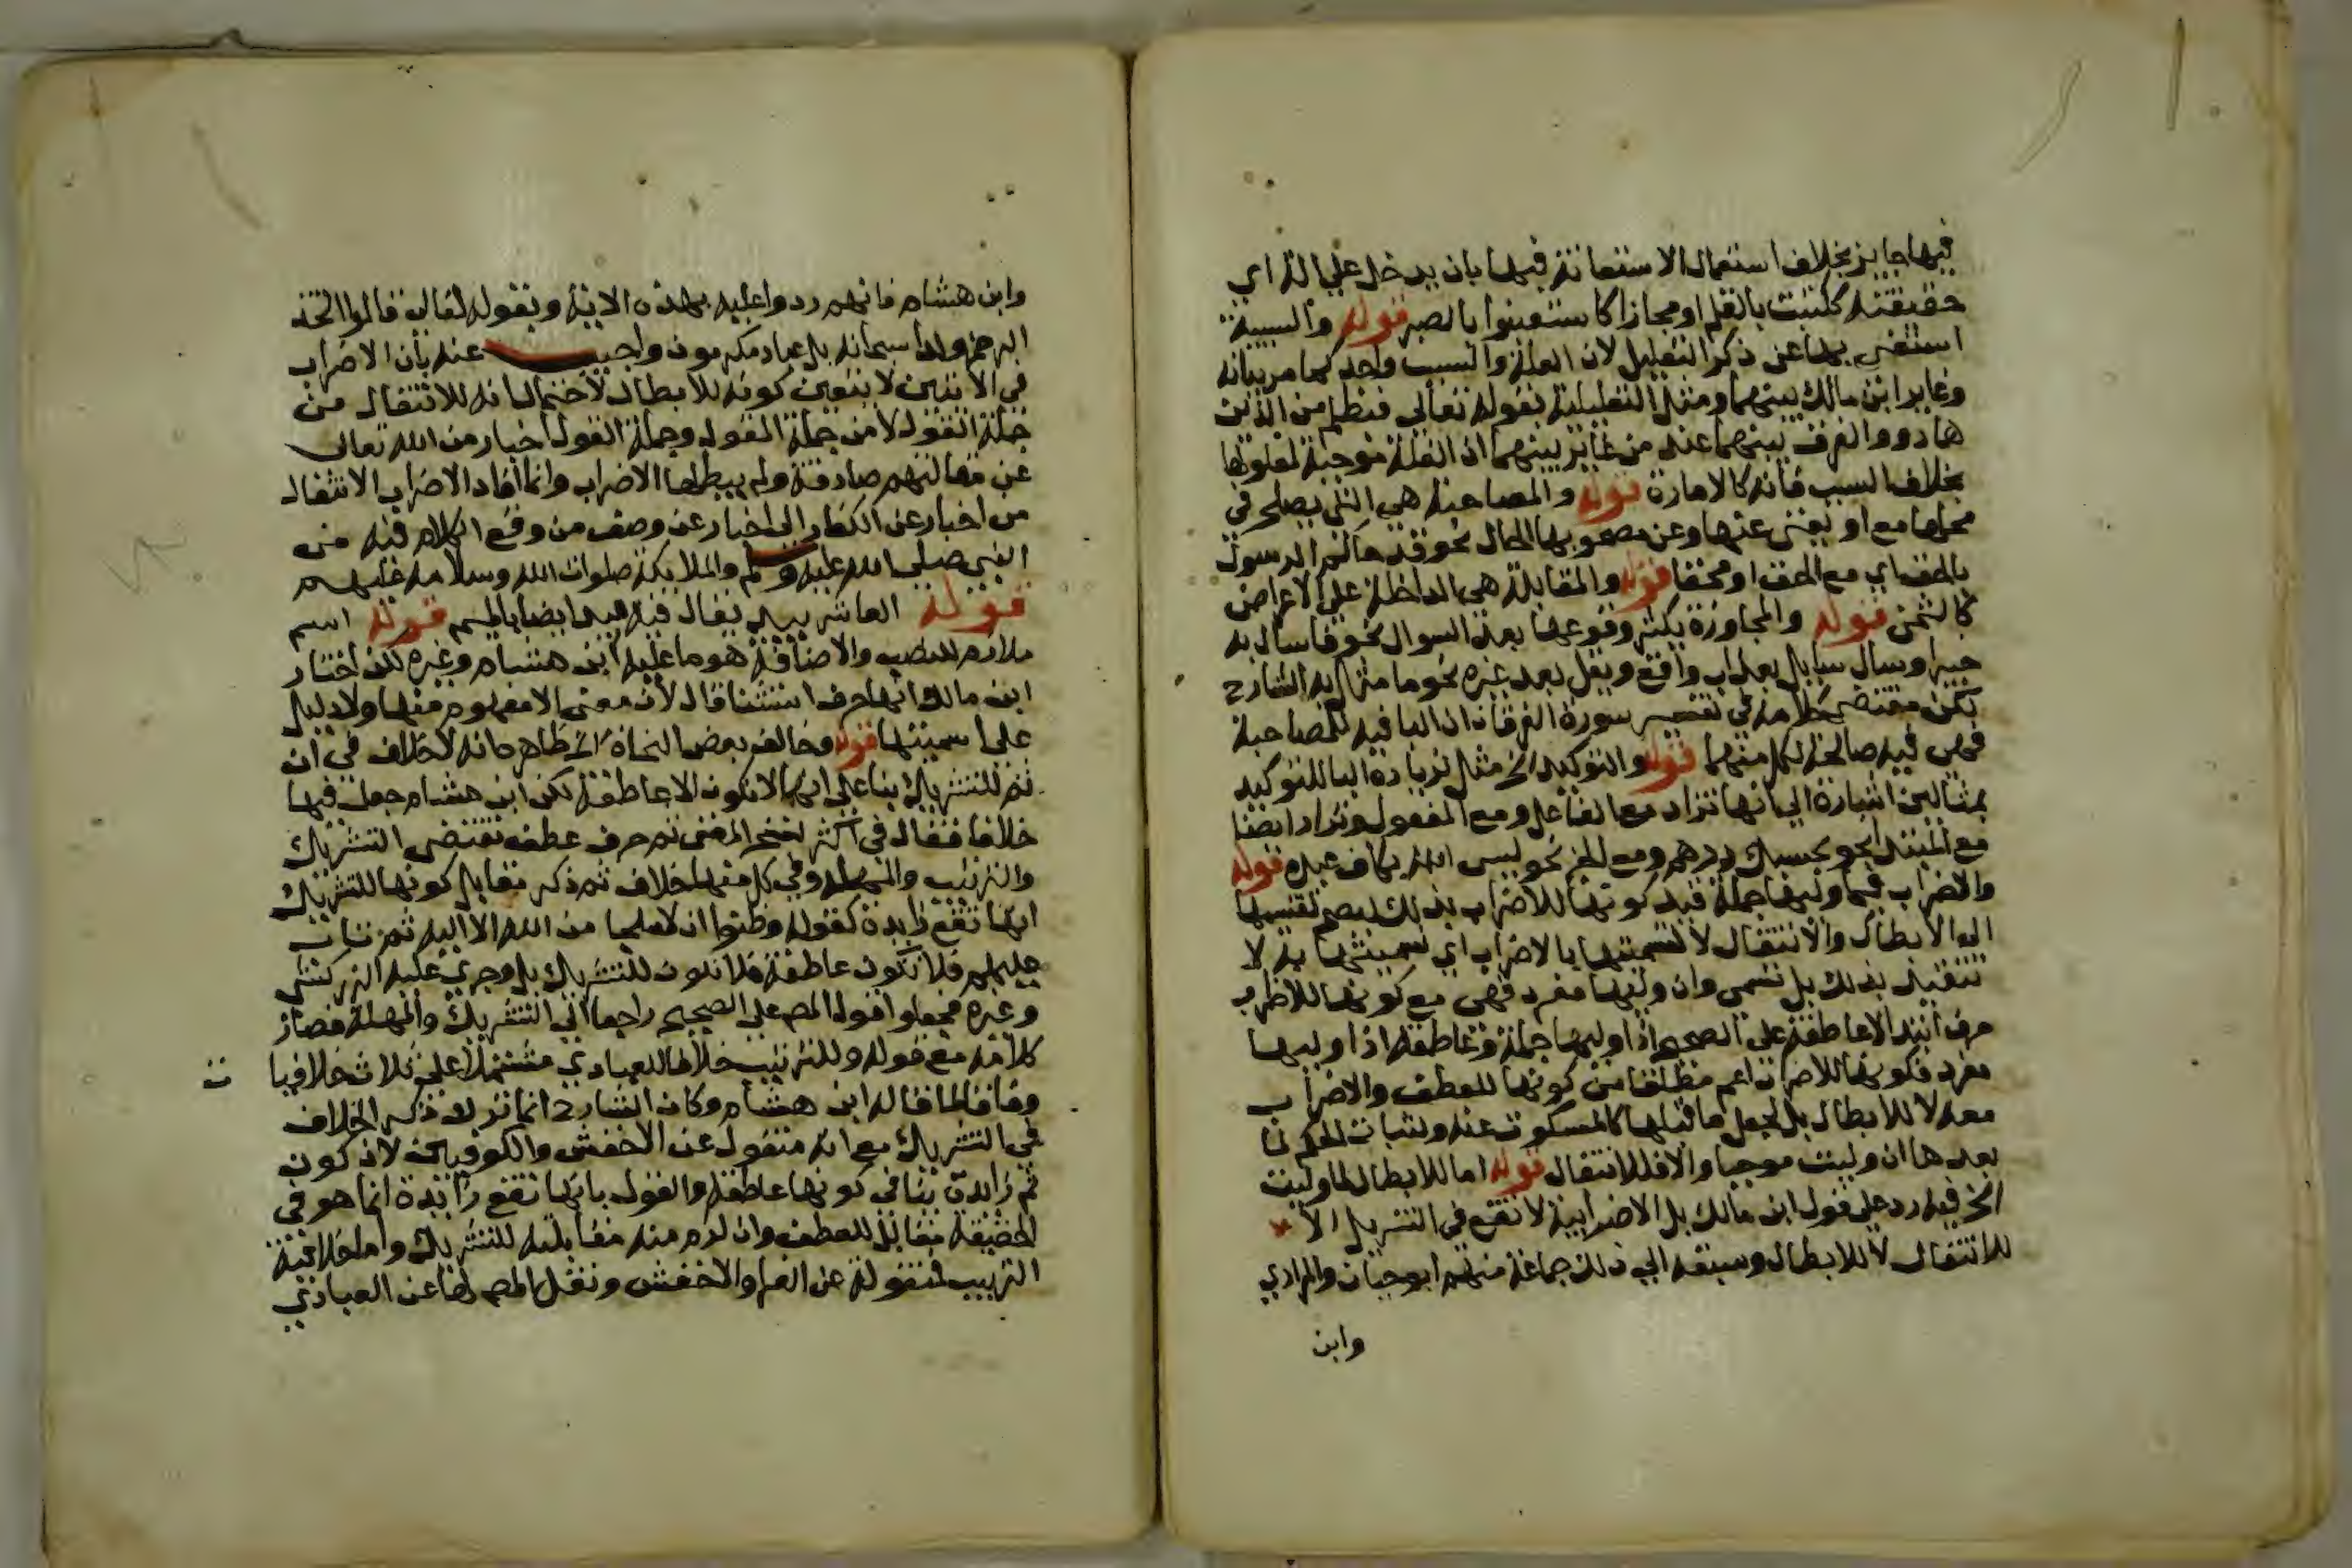 فيها جايز بخلاف استعمال الاستعانة فيها بان يدخل علي الة اي
حقيقته ككتبت بالقلم او مجازا كاستعينوا بالصبر قوله والسببية
استغني بها عن ذكر التعليل لان العلة والسبب واحد كما مر بيانه
وغاير ابن مالك بينهما ومثل التعليلية بقوله تعالى فبظلم من الذين
هادوا والفرق بينهما عند من غاير بينهما ان العلة موجبة لمعلولها
بخلاف السبب فانه كالامارة قوله والمصاحبة هي التي يصلح في
محلها مع او يغني عنها وعن مصحوبها الحال نحو قد جاكم الرسول
بالحق اي مع الحق او محقا قوله والمقابلة هي الداخلة علي الاعواض
كالثمن قوله والمجاوزة يكثر وقوعها بعد السوال نحو فاسأل به
خبيرا وسال سايل بعذاب واقع ويقل بعد غيره نحو ما مثل به الشارح
لكن مقتضى كلامه في تفسير سورة الفرقان ان البا فيه للمصاحبة
فهي فيه صالحة لكل منهما قوله والتوكيد الخ مثل لزيادة البا للتوكيد
بمثالين اشارة الي انها تزاد مع الفاعل ومع المفعول وتزاد ايضا
مع المبتدا نحو بحسبك درهم ومع الخبر نحو ليس الله بكاف عبده قوله
والاضراب فيما وليها جملة قيد كونها للاضراب بذلك ليصح تقسيمها
الى الابطال والانتقال لا لتسميتها بالاضراب اي تسميتها به لا
تتقيد بذلك بل تسمى وان وليها مفرد فهي مع كونها للاضراب
حرف ابتدا لا عاطفة على الصحيح اذا وليها جملة وعاطفة اذا وليها
مفرد فكونها للاضراب اعم مطلقا من كونها للعطف والاضراب
معه لا للابطال بل لجعل ما قبلها كالمسكوت عنه واثبات الحكم لما
بعدها ان وليت موجبا والا فللانتقال قوله اما للابطال لما وليت
الخ فيه رد على قول ابن مالك بل الاضرابية لا تقع في التنزيل الا
للانتقال لا للابطال وسبقه الي ذلك جماعة منهم ابو حيان والمرادي
وابن
وابن هشام فانهم ردوا عليه بهذه الاية وبقوله تعالى قالوا اتخذ
الرحمن ولدا سبحانه بل عباد مكرمون واجيب عنه بأن الاضراب
في الايتين لا يتعين كونه للابطال لاحتمال انه للانتقال من
جملة القول لا من جملة المقول وجملة القول اخبار من الله تعالى
عن مقالتهم صادقة ولم يبطلها الاضراب وانما افاد الاضراب الانتقال
من اخبار عن الكفار الى اخبار عن وصف من وقع الكلام فيه من
النبي صلى الله عليه وسلم والملايكة صلوات الله وسلامه عليهم
قوله العاشر بيد يقال فيه ميد ايضا بالميم قوله اسم
ملازم للنصب والاضافة هو ما عليه ابن هشام وغيره لكن اختار
ابن مالك انها حرف استثنا قال لأن معنى الا مفهوم منها ولا دليل
على اسميتها قوله وخالف بعض النحاة الخ ظاهره انه لا خلاف في ان
ثم للتشريك بنا على انها لا تكون الا عاطفة لكن ابن هشام جعل فيها
خلافا فقال في اكثر نسخ المغني ثم حرف عطف تقتضي التشريك
والترتيب والمهلة وفي كل منها خلاف ثم ذكر مقابل كونها للتشريك
انها تقع زايدة كقوله وظنوا ان لا ملجا من الله الا اليه ثم تاب
عليهم فلا تكون عاطفة فلا تكون للتشريك بل وجرى عليه الزركشي
وغيره فجعلوا قول المص على الصحيح راجعا الى التشريك والمهلة فصار
كلامه مع قوله وللترتيب خلافا للعبادي مشتملا على ثلاث خلافيا ت
وفاقا لما قاله ابن هشام وكان الشارح انما ترك ذكر الخلاف
في التشريك مع انه منقول عن الاخفش والكوفيين لان كون
ثم زايدة ينافي كونها عاطفة والقول بانها تقع زائدة انما هو في
الحقيقة مقابل للعطف وان لزم منه مقابلته للتشريك واما خلافية
الترتيب فمنقولة عن الفرا والاخفش ونقل المص لها عن العبادي